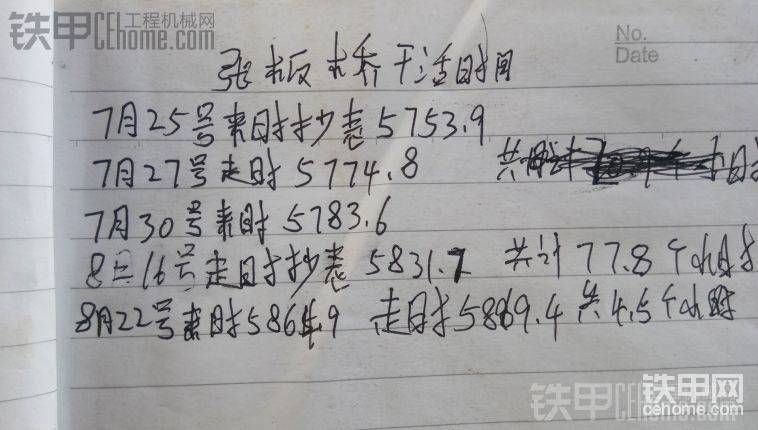 铁甲 工程机械网 CEhome.com
No.
Date
张板桥干活时间
7月25号来时抄表5753.9
7月27号走时5774.8 共
7月30号来时5783.6
8月16号走时抄表5831.7 共计77.8个小时
8月22号来时5864.9 走时5869.4 共4.5个小时
铁甲CEhome.com
铁甲网
cehome.com